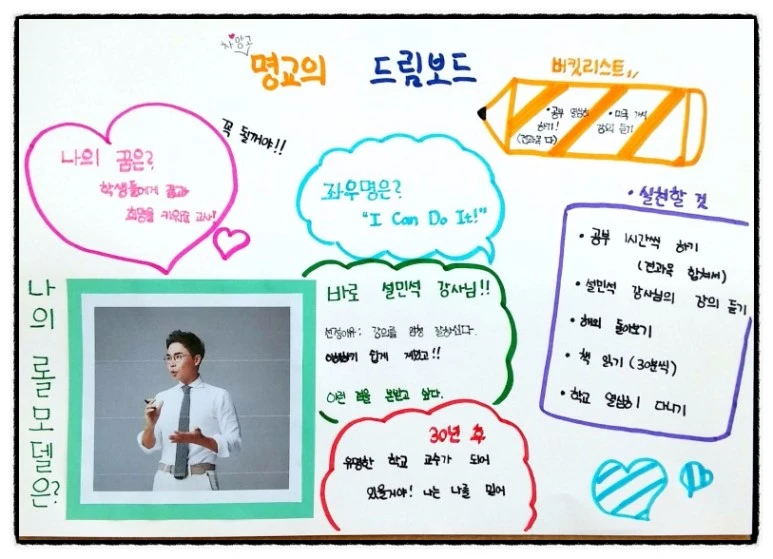 명교의 드림보드
꼭 될꺼야!!
나의 꿈은?
학생들에게 꿈과
희망을 키워줄 교사!
좌우명은?
"I Can Do It!"
버킷리스트
• 공부 열심히
하기!
(전과목 다)
• 미국 가서
강의 듣기
• 실천할 것
• 공부 1시간씩 하기
(전과목 합쳐서)
• 설민석 강사님의 강의 듣기
• 해외 돌아보기
• 책 읽기 (30분씩)
• 학교 열심히 다니기
나의 롤모델은?
바로 설민석 강사님!!
선정이유: 강의를 엄청 잘하신다.
쉽게
이런 점을 본받고 싶다.
30년 후
유명한 학교 교수가 되어
있을거야! 나는 나를 믿어